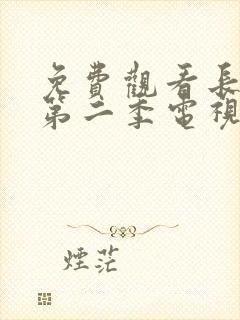 免費觀看長
第二季電視
煙茫